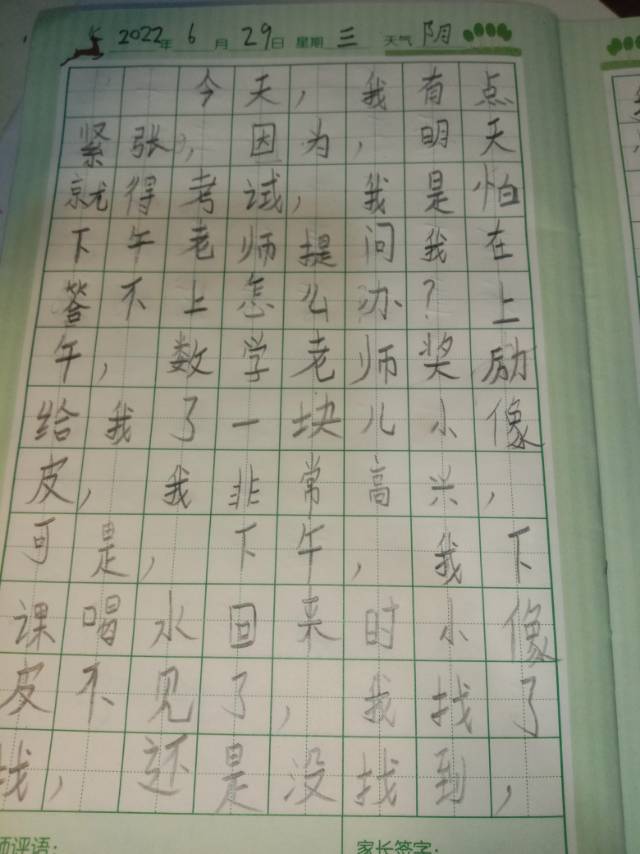 2022年 6月 29日 星期 三 天气 阴
今天，我有点
紧张，因为，明天
就得考试，我是怕
下午老师提问我在
答不上怎么办？上
午，数学老师奖励
给我了一块儿小像
皮，我非常高兴，
可是，下午，我下
课喝水回来时小像
皮不见了，我找了
找，还是没找到，
师评语：
家长签字：